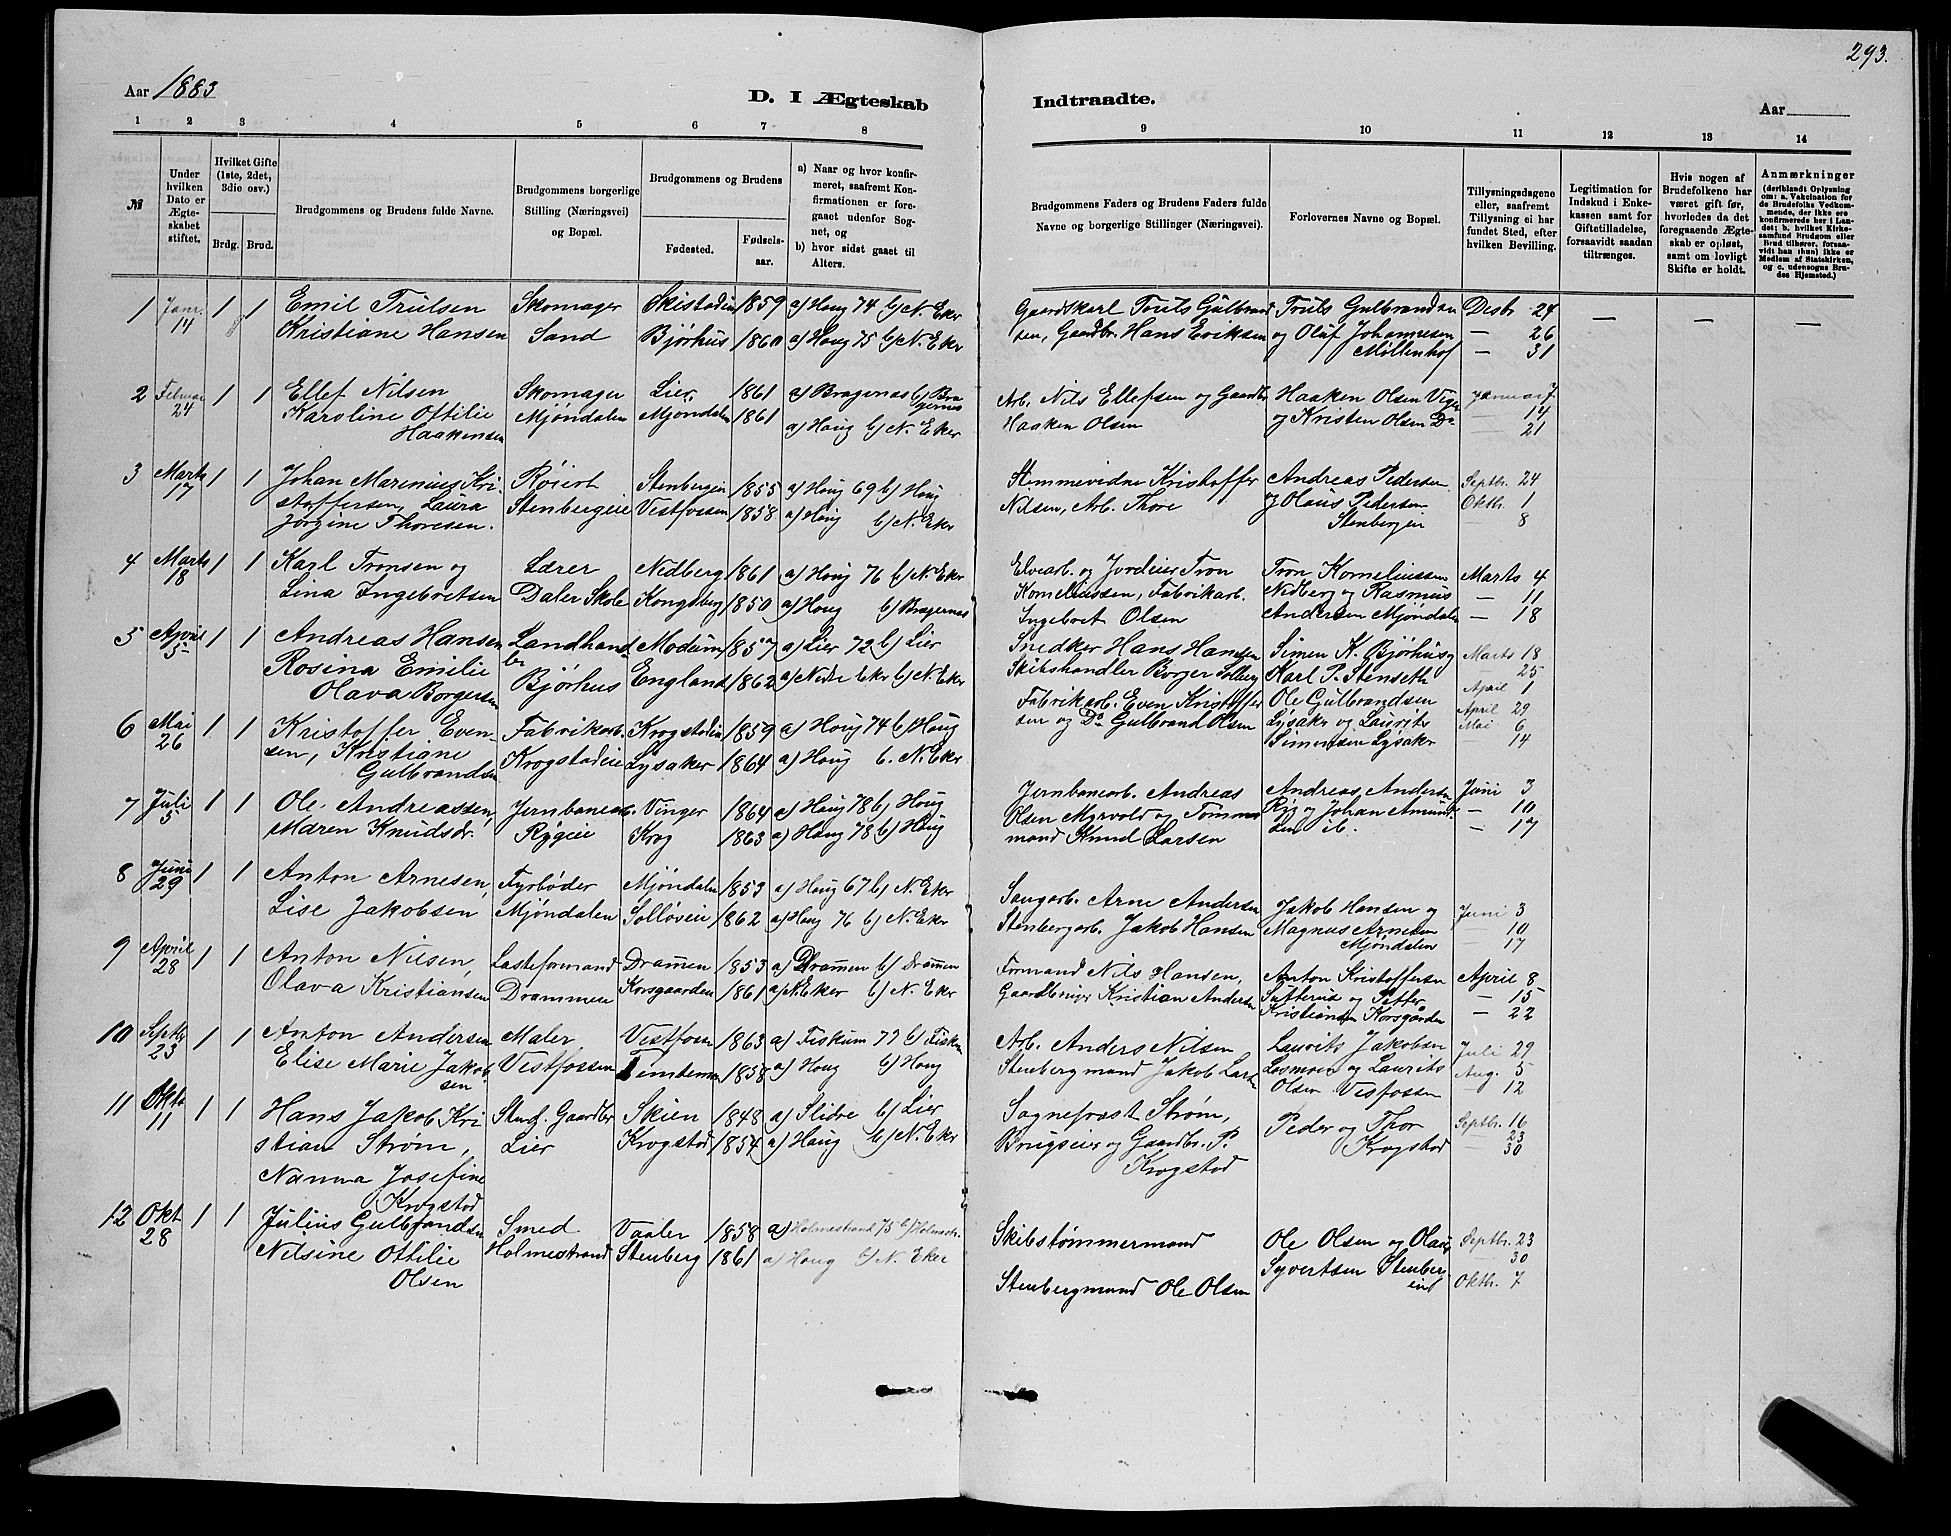 293.
Aar 1883
D. I Ægteskab
Indtraadte.
Aar
1 2 3 4 5 6 7 8
9 10 11 12 13 14
№
Under hvilken Dato er Ægteskabet stiftet.
Hvilket Gifte (1ste, 2det, 3die osv.)
Brdg. Brud.
Brudgommens og Brudens fulde Navne.
Brudgommens borgerlige Stilling (Næringsvei) og Bopæl.
Brudgommens og Brudens
Fødested.
Fødselsaar.
a) Naar og hvor konfirmeret, saafremt Konfirmationen er foregaaet udenfor Sognet, og
b) hvor sidst gaaet til Alters.
Brudgommens Faders og Brudens Faders fulde Navne og borgerlige Stillinger (Næringsvei).
Forlovernes Navne og Bopæl.
Tillysningsdagene eller, saafremt Tillysning ei har fundet Sted, efter hvilken Bevilling.
Legitimation for Indskud i Enkekassen samt for Giftetilladelse, forsaavidt saadan tiltrænges.
Hvis nogen af Brudefolkene har været gift før, hvorledes da det foregaaende Ægteskab er opløst, samt om lovligt Skifte er holdt.
Anmærkninger
(deriblandt Oplysning om: a. Vakcination for de Brudefolks Vedkommende, der ikke ere konfirmerede her i Landet; b. hvilket Kirkesamfund Brudgom eller Brud tilhører, forsaavidt han (hun) ikke er Medlem af Statskirken, og c. udensogns Brudes Hjemsted.)
1 Janr. 14 1 1 Emil Trulsen Skomager Skistadeie 1859 a) Houg 74 b) N. Eker
Kristiane Hansen Sand Bjørhus 1860 a) Houg 75 b) N. Eker
Gaardskarl Truls Gulbrand Truls Gulbrandsen Desbr 24
sen, Gaardbr. Hans Eriksen og Oluf Johannesen — 26
Møllenhof — 31
2 Februar 24 1 1 Ellef Nilsen Skomager Lier 1861 a) Bragernæs b) Bragernæs
Karoline Ottilie Mjøndalen Mjøndalen 1861
Haakensen a) Houg b) N. Eker
Arb. Nils Ellefsen og Gaardbr. Haaken Olsen Januar 7
Haaken Olsen og Kristen Olsen Do — 14
— 21
3 Marts 17 1 1 Johan Marinius Kri- Røiert Stenbergeie 1855 a) Houg 69 b) Houg
stoffersen, Laura Stenbergeie Vestfossen 1858 a) Houg b) N. Eker
Jørgine Thoresen.
Kristoffer Andreas Pedersen Septbr. 24
Nilsen, Arb. Thore og Olaus Pedersen Oktbr. 1
Stenbergeie — 8
4 Marts 18 1 1 Karl Tronsen og Lærer Nedberg 1861 a) Houg 76 b) N. Eker
Lina Ingebretsen Daler Skole Kongsberg 1850 a) Houg b) Bragernæs
Elvearb. og Jordeier Tron Tron Korneliussen Marts 4
Korneliussen, Fabrikarb. Nedberg og Rasmus — 11
Ingebret Olsen Andersen Mjøndalen — 18
5 April 5 1 1 Andreas Hansen Landhandler Modum 1857 a) Lier 72 b) Lier
Rosina Emilie Bjørhus England 1862 a) Nedre Eker b) N. Eker
Olava Borgersen
Snedker Hans Hansen Simen K. Bjørhus og Marts 18
Skibshandler Borger Solberg Karl P. Stenseth 25
April 1
6 Mai 26 1 1 Kristoffer Even- Fabrikarb. Krogstadeie 1859 a) Houg 74 b) Houg
sen, Kristiane Krogstadeie Lysaker 1864 a) Houg b. N. Eker
Gulbrandsen
Fabrikarb. Even Kristoffer Ole Gulbrandsen April 29
sen og Do Gulbrand Olsen Lysaker og Laurits Mai 6
Simensen Lysaker — 14
7 Juli 5 1 1 Ole Andreassen, Jernbanearb. Vinger 1864 a) Houg 78 b) Houg
Maren Knudsdr. Rygeie Krog 1863 a) Houg 78 b) Houg
Jernbanearb. Andreas Andreas Andersen Juni 3
Olsen Myrvold og Tømmer Ryg og Johan Amund — 10
mand Knud Larsen sen ib. — 17
8 Juni 29 1 1 Anton Arnesen, Fyrbøder Mjøndalen 1853 a) Houg 67 b) N. Eker
Lise Jakobsen Mjøndalen Solløseie 1862 a) Houg 76 b) N. Eker
Saugarb. Arne Andersen Jakob Hansen og Juni 3
Stenbergarb. Jakob Hansen Magnus Arnesen — 10
Mjøndalen — 17
9 April 28 1 1 Anton Nilsen, Lasteformand Drammen 1853 a) Drammen b) Drammen
Olava Kristiansen Drammen Korsgaarden 1861 a) N. Eker b) N. Eker
Formand Nils Hansen, Anton Kristoffersen April 8
Gaardbruger Kristian Andersen og Petter — 15
Kristiansen Korsgården — 22
10 Septbr 23 1 1 Anton Andersen Maler Vestfossen 1863 a) Fiskum 77 b) Fiskum
Elise Marie Jakob- Vestfossen 1858 a) Houg b) Houg
sen
Arb. Anders Nilsen Laurits Jakobsen Juli 29
Stenbergmand Jakob Larsen Losmoen og Laurits Aug. 5
Olsen Vesfossen — 12
11 Oktb 11 1 1 Hans Jakob Kri Stud. Gaardbr Skien 1848 a) Slidre b) Lier
stian Strøm, Lier Krogstad 1854 a) Houg b) N. Eker
Nanna Josefine
Krogstad
Sogneprest Strøm, Peder og Thor Septbr. 16
Brugseier og Gaardbr. P. Krogstad — 23
Krogstad — 30
12 Okt 28 1 1 Julius Gulbrandsen Smed Vaaler 1858 a) Holmestrand 75 b) Holmestr.
Nilsine Ottilie Holmestrand Stenberg 1861 a) Houg b) N. Eker
Olsen
Skibstømmermand Ole Olsen og Olaus Septbr. 23
Syvertsen Stenberg — 30
Stenbergmand Ole Olsen eie Oktbr. 7